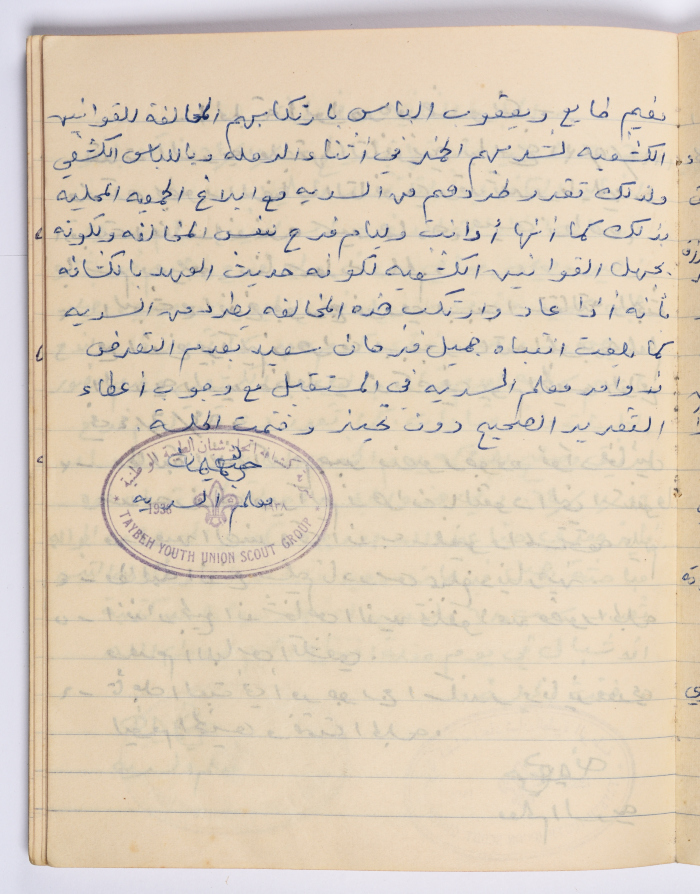 نعيم طايع ويعقوب الياس بارتكابهم المخالفة للقوانين
الكشفيه لشربهم الخمر في أثناء الرحله وباللباس الكشفي
ولذلك تقرر طردهم من السريه مع ابلاغ الجمعيه المحلية
بذلك كما أنها أدانت وليام فرح بنفس المخالفه ولكونه
يجهل القوانين الكشفيه لكونه حديث العهد بالكشافه
بأنه أذا عاد وارتكب هذه المخالفه يطرد من السريه
كما يلفت انتباه جميل فرحان سعيد بعدم التعرض
لأوامر معلم السريه في المستقبل مع وجوب أعطاء
التقرير الصحيح دون تحيز وختمت الجلسة.
معلم السريه
1938 ١٩٣٨
TAYBEH YOUTH UNION SCOUT GROUP